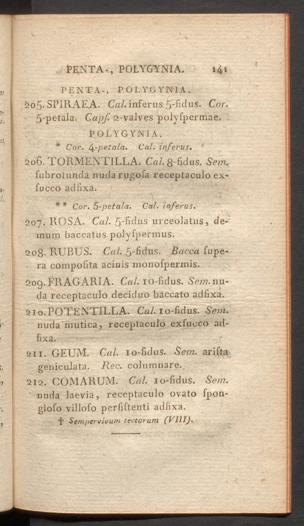 PENTA-, POLYGYNIA. 141
PENTA-, POLYGYNIA.
205. SPIRAEA. Cal. inferus 5-fidus. Cor.
5-petala. Capſ. 2-valves polyſpermae.
POLYGYNIA.
* Cor. 4-petala. Cal. inferus.
206. TORMENTILLA. Cal. 8-fidus. Sem.
ſubrotunda nuda rugoſa receptaculo ex-
ſucco adfixa.
** Cor. 5-petala. Cal. inferus.
207. ROSA. Cal. 5-fidus urceolatus, de-
mum baccatus polyſpermus.
208. RUBUS. Cal. 5-fidus. Bacca ſupe-
ra compoſita acinis monoſpermis.
209. FRAGARIA. Cal. 10-fidus. Sem. nu-
da receptaculo deciduo baccato adfixa.
210. POTENTILLA. Cal. 10-fidus. Sem.
nuda mutica, receptaculo exſucco ad-
fixa.
211. GEUM. Cal. 10-fidus. Sem. ariſta
geniculata. Rec. columnare.
212. COMARUM. Cal. 10-fidus. Sem.
nuda laevia, receptaculo ovato ſpon-
gioſo villoſo perſiſtenti adfixa.
† Sempervivum tectorum (VIII).